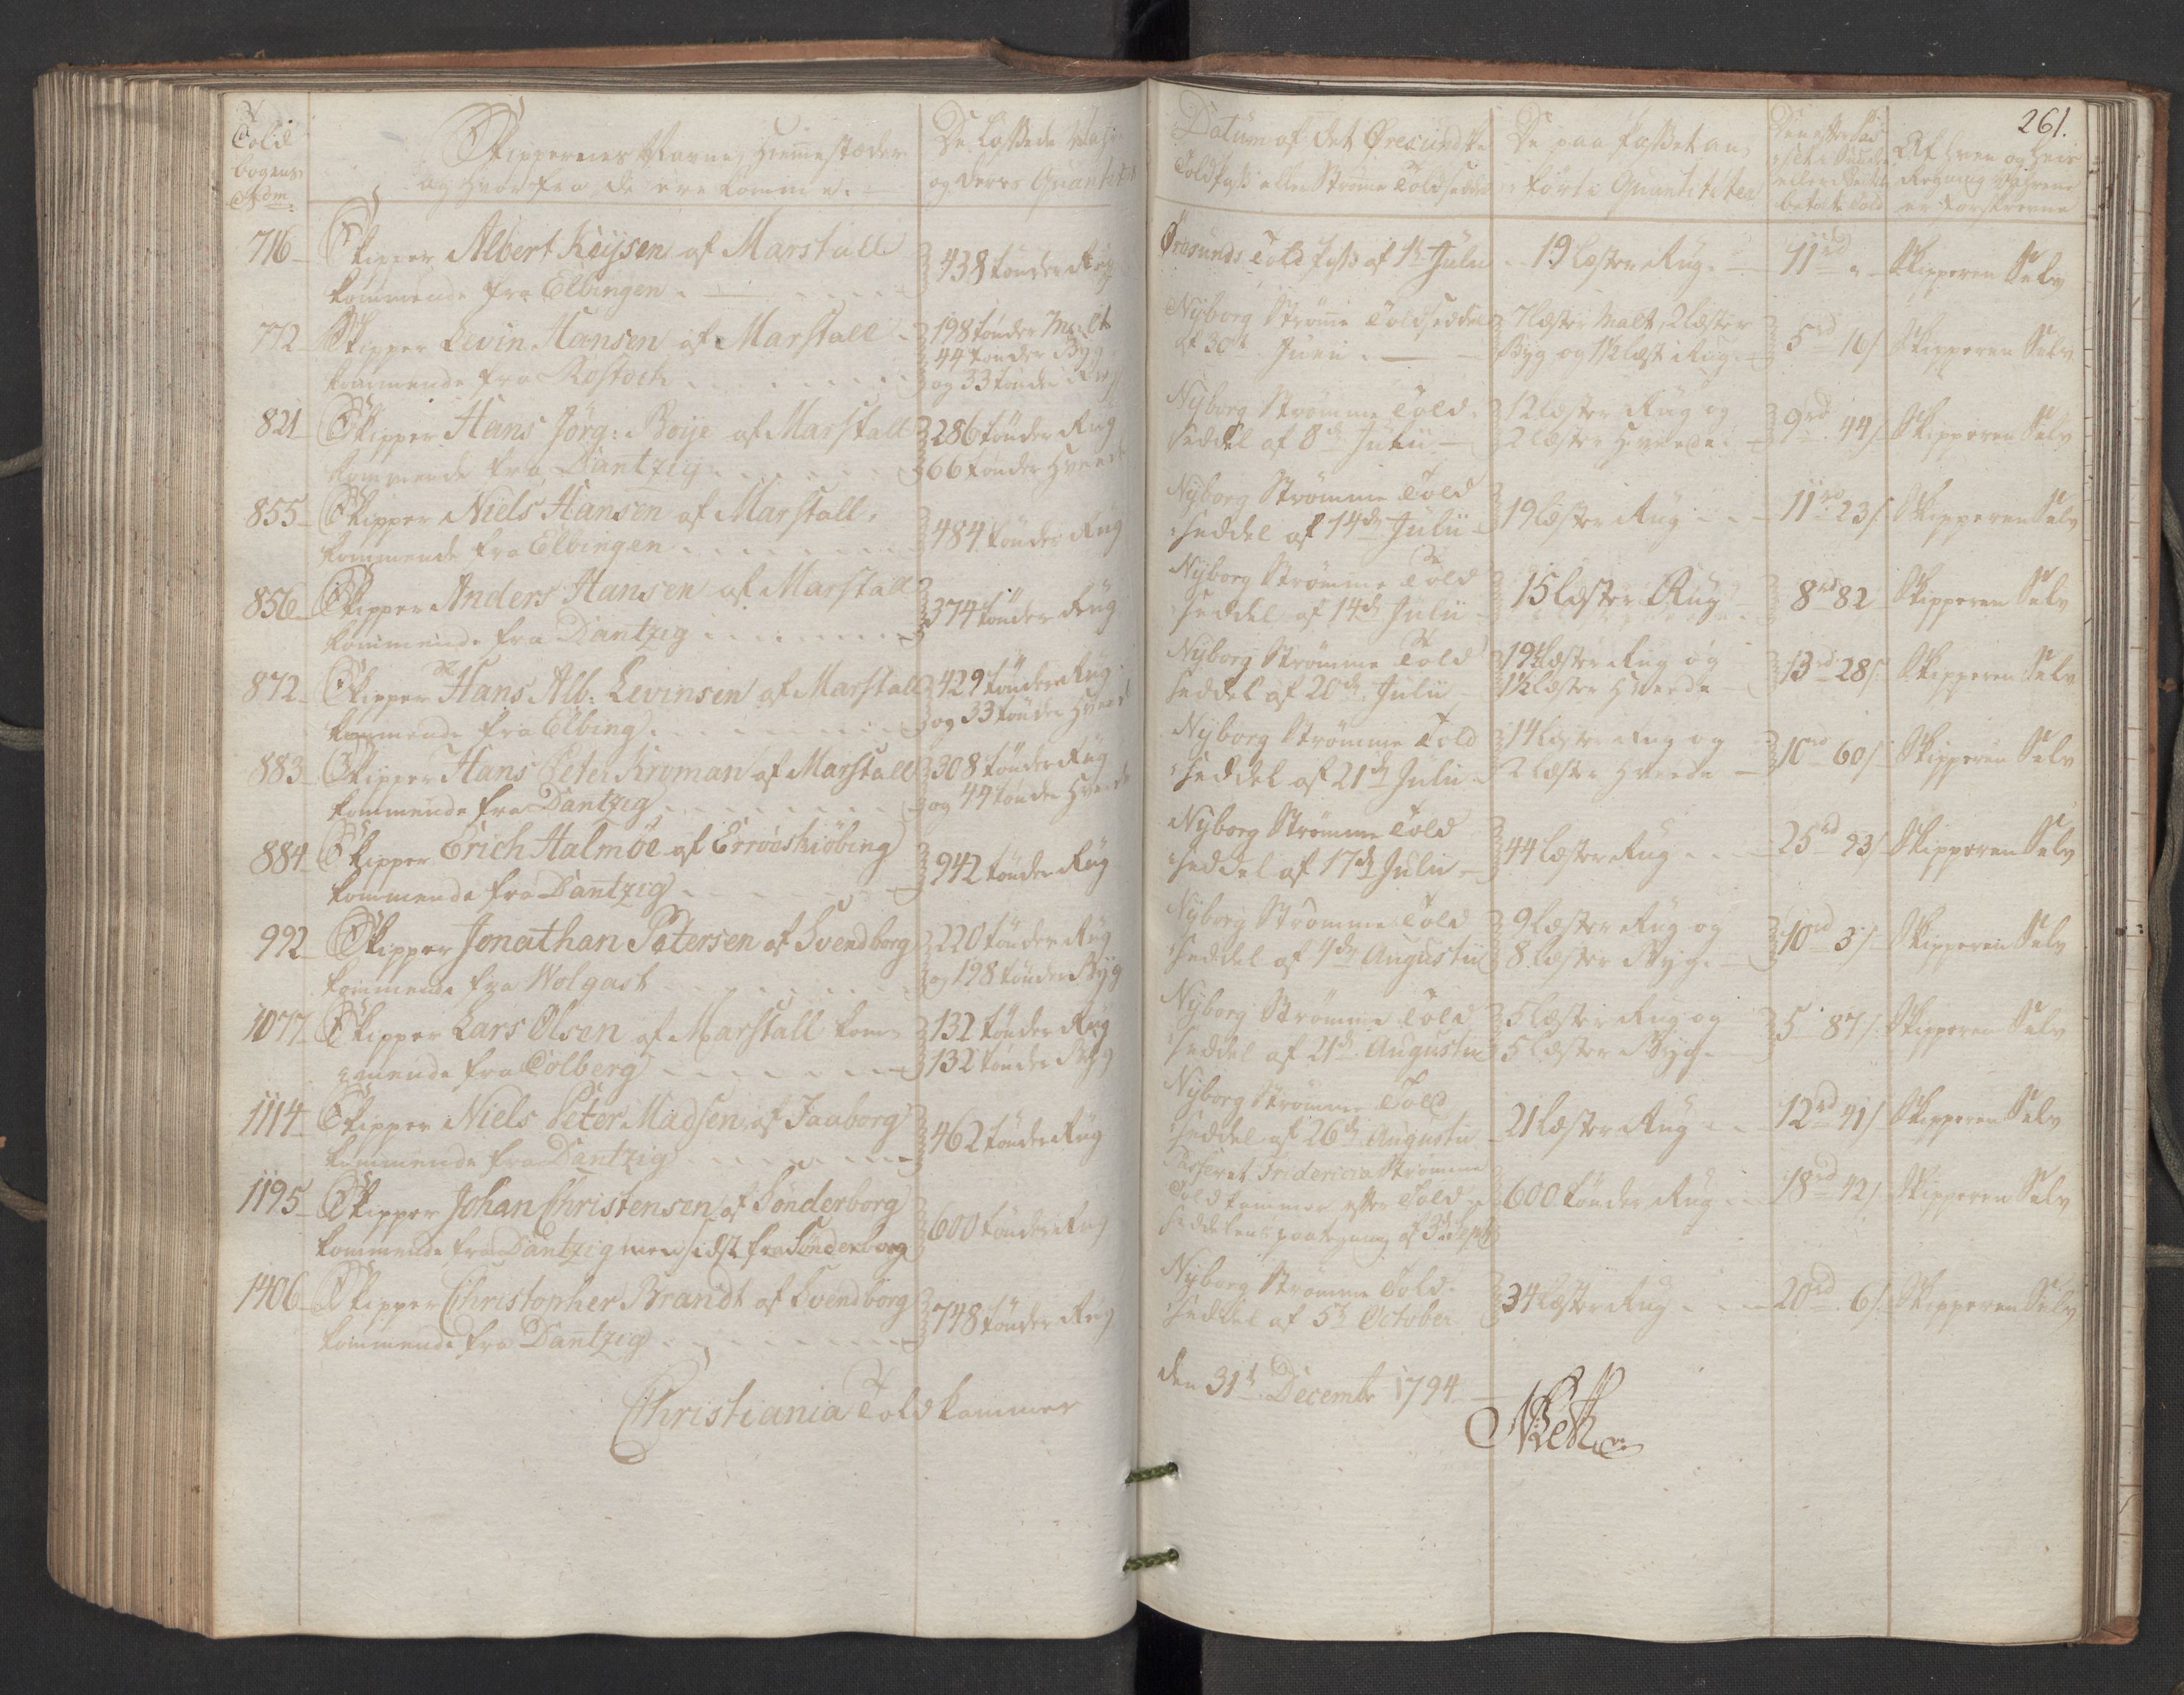 Told
bogens
Nom:
Skippernes Navne, Hiemmestæder
og hvorfra de ere komne.
De lossede Vahre
og deres Quantite
716 Skipper Albert Keysen af Marstall
kommende fra Elbingen
438 tönder Rug
772 Skipper Levin Hansen af Marstall
kommende fra Rostock
198 tönder Malt
44 tönder Byg
og 33 tönder Rug
821 Skipper Hans Jörg: Boije af Marstall
kommende fra Dantzig
286 tönder Rug
66 tönder Hvede
855 Skipper Niels Hansen af Marstall,
kommende fra Elbingen
484 tönder Rug
856 Skipper Anders Hansen af Marstall
kommende fra Dantzig
374 tönder Rug
872 Skipper Hans Alb: Levinsen af Marstall
kommende fra Elbing
429 tönder Rug
og 33 tönder Hvede
883 Skipper Hans Peter Kroman af Marstall
kommende fra Dantzig
308 tönder Rug
og 44 tönder Hvede
884 Skipper Erich Halmöe af Erröeskiöbing
kommende fra Dantzig
942 tönder Rug
992 Skipper Jonathan Petersen af Svendborg
kommende fra Wolgast
220 tönder Rug
og 198 tönder Byg
1077 Skipper Lars Olsen af Marstall kom-
mende fra Colberg
132 tönder Rug
132 tönder Byg
1114 Skipper Niels Peter Madsen af Faaborg
kommende fra Dantzig
462 tönder Rug
1195 Skipper Johan Christensen af Sönderborg
kommende fra Dantzig men sidst fra Sönderborg
600 tönder Rug
1406 Skipper Christopher Brandt af Svendborg
kommende fra Dantzig
748 tönder Rug
Christiania Toldkammer
261.
Datum af det Øresundske
Toldpass eller Strömme Toldseddel
De paa Passet an-
förte Quantiteter
betalte Told
Af hvem og hvis
Regning Vahrene
ere forskrevne
Øresunds Told Pass af 1te Julii 19 læster Rug 11 rd " Skipperen Selv
Nyborg Strömme Toldseddel
af 30te Junii
7 læster Malt, 2 læster
Byg og 1½ læst Rug
5 rd 16 s Skipperen Selv
Nyborg Strömme Told-
seddel af 8de Julii
12 læster Rug og
2 læster Hvede
9 rd 44 s Skipperen Selv
Nyborg Strömme Told
seddel af 14de Julii
19 læster Rug
11 rd 23 s Skipperen Selv
Nyborg Strömme Told
seddel af 14de Julii
15 læster Rug
8 rd 82 Skipperen Selv
Nyborg Strömme Told
seddel af 20de Julii
19½ læster Rug og
1½ læster Hvede
13 rd 28 s Skipperen Selv
Nyborg Strömme Told
seddel af 21de Julii
14 læster Rug og
2 læster Hvede
10 rd 60 s Skipperen Selv
Nyborg Strömme Told
seddel af 17de Julii
44 læster Rug
25 rd 93 s Skipperen Selv
Nyborg Strömme Told
seddel af 4de Augustii
9 læster Rug og
8 læster Byg
10 rd 3 s Skipperen Selv
Nyborg Strömme Told
seddel af 21de Augustii
5 læster Rug og
5 læster Byg
5 87 s Skipperen Selv
Nyborg Strömme Told
seddel af 26de Augustii
21 læster Rug
12 rd 41 s Skipperen Selv
Passeret Fridericia Strömme
Toldkammer efter Told-
seddelens paategning af 3de Septbr
600 tönder Rug
18 rd 42 s Skipperen Selv
Nyborg Strömme Told-
seddel af 5te October
34 læster Rug
20 rd 6 s Skipperen Selv
den 31te Decembr 1794